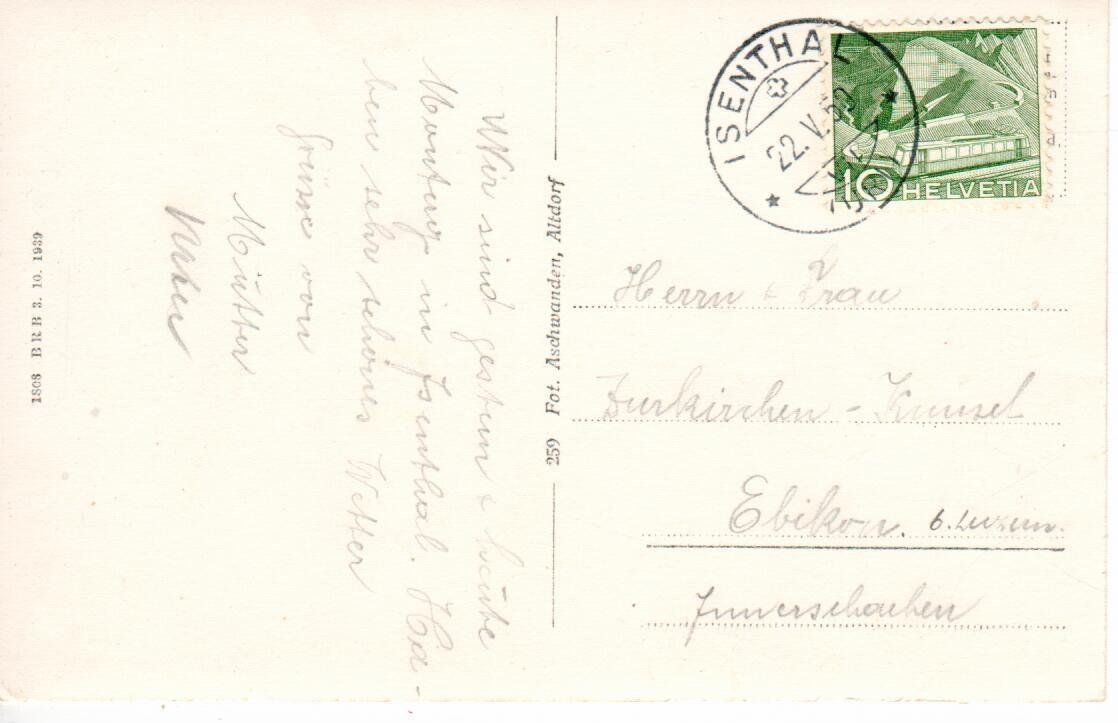 Wir sind gestern & heute
Montag in Isenthal. Ha-
ben sehr schönes Wetter
Grüsse von
Mutter
1808 BRB 3. 10. 1939
259 Fot. Aschwanden, Altdorf
ISENTHAL
22. V. 52
(URI)
10 HELVETIA
Herrn & Frau
Zurkirchen - Kunsel
Ebikon. b. Luzern.
Innerschachen